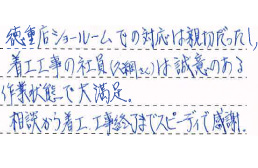 徳重店ショールームでの対応は親切だったし、
着工工事の社員(久綱さん)は誠意のある
作業状態で大満足。
相談から着工、工事終了までスピーディで感謝。